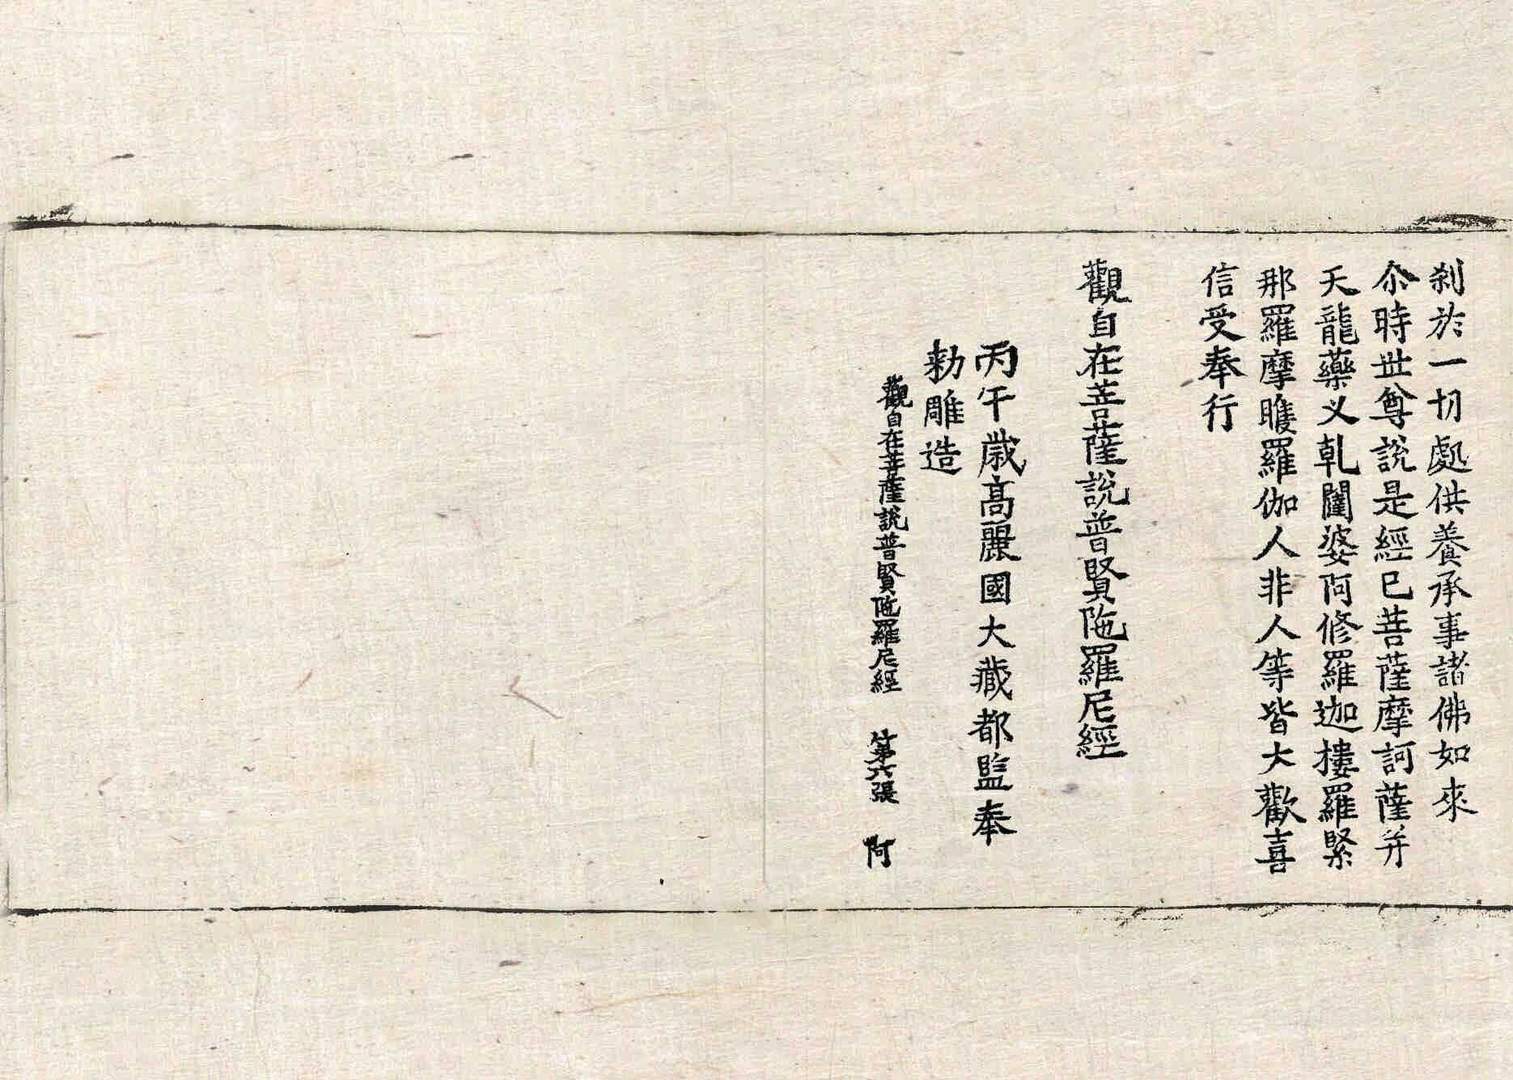 剎於一切處供養承事諸佛如來
尒時世尊說是經已菩薩摩訶薩并
天龍藥叉乹闥婆阿修羅迦樓羅緊
那羅摩睺羅伽人非人等皆大歡喜
信受奉行
觀自在菩薩說普賢陁羅尼經
丙午歲高麗國大藏都監奉
勑雕造
觀自在菩薩說普賢陁羅尼經 第六張 阿